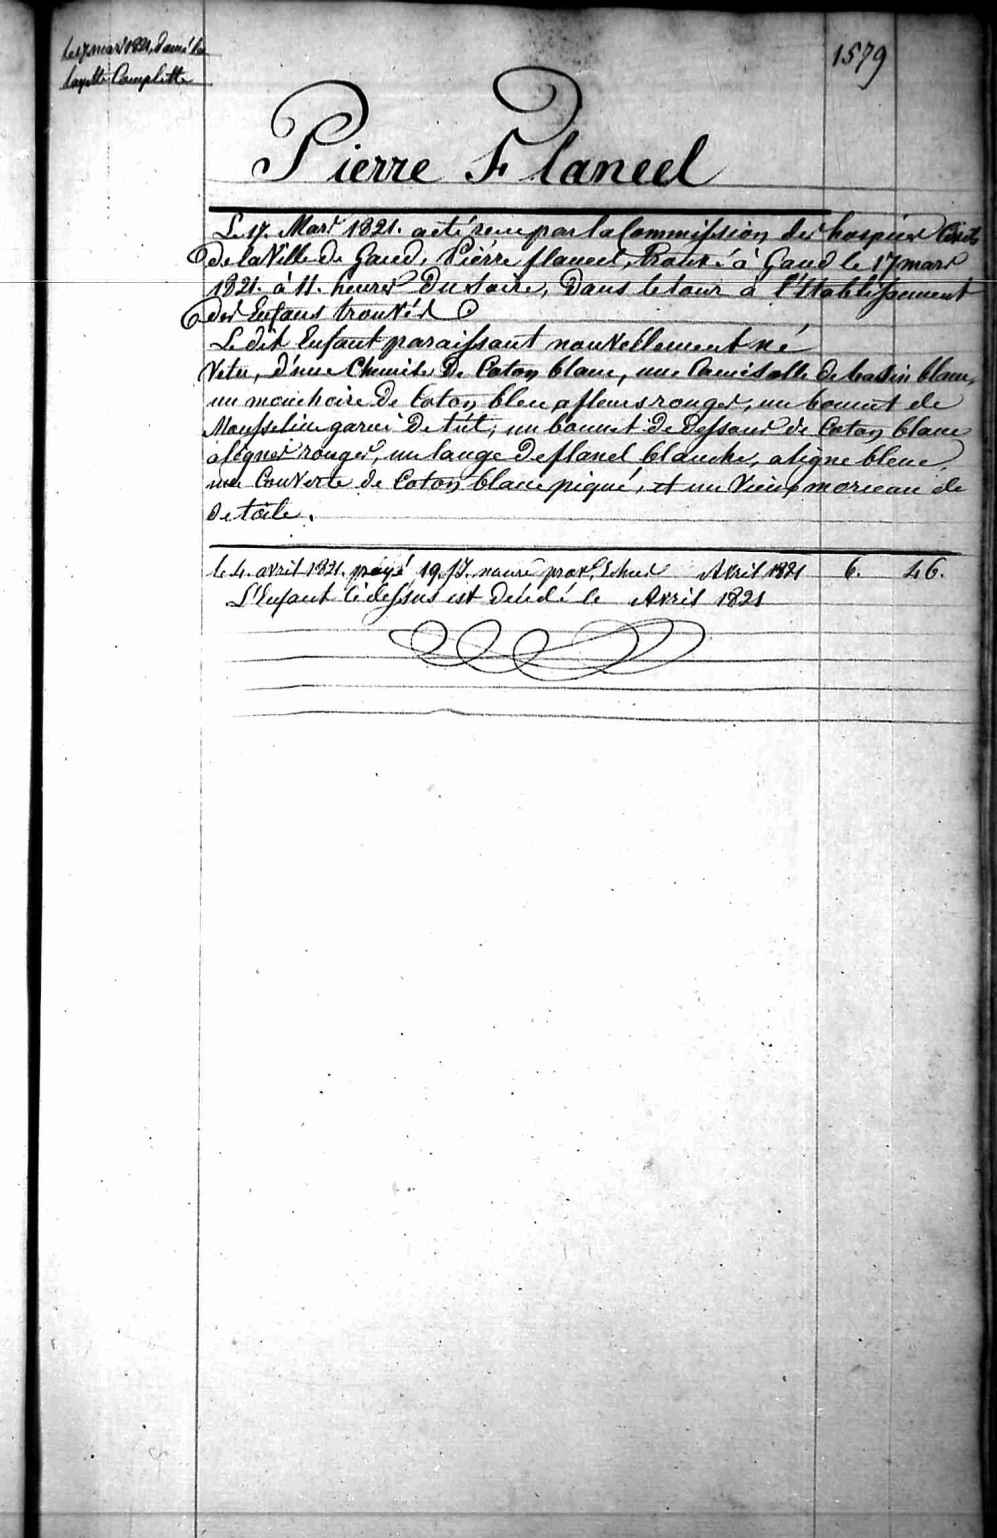 le 17 mars 1821, donné la
layette Complette
1579
Pierre Flaneel
Le 17. Mars 1821. a eté recu par la Commission des hospices Civils
de la Ville de Gand, Pierre flaneel, Trouvé à Gand le 17 mars
1821. à 11. heures Du Soire, Dans le tour à l'Etablissement
des Enfans trouvés
Le dit Enfant paraissant nouvellement né
Vetu, d'une Chemise De Coton blanc, une Camisolle de bassin blanc,
un mouchoire De Coton bleu a fleurs rouges, un bonnet de
Mousseline garni De tul, un bonnet de Dessous de Coton blanc
a lignes rouges, un lange De flanel blanche, a ligne bleue,
une Couverte de Coton blanc piqué, et un Vieux morceau de
de toile.
le 4. avril 1821. payé 19. 17. Avril 1821 6. 46.
L'Enfant ci dessus est Décédé le Avril 1821